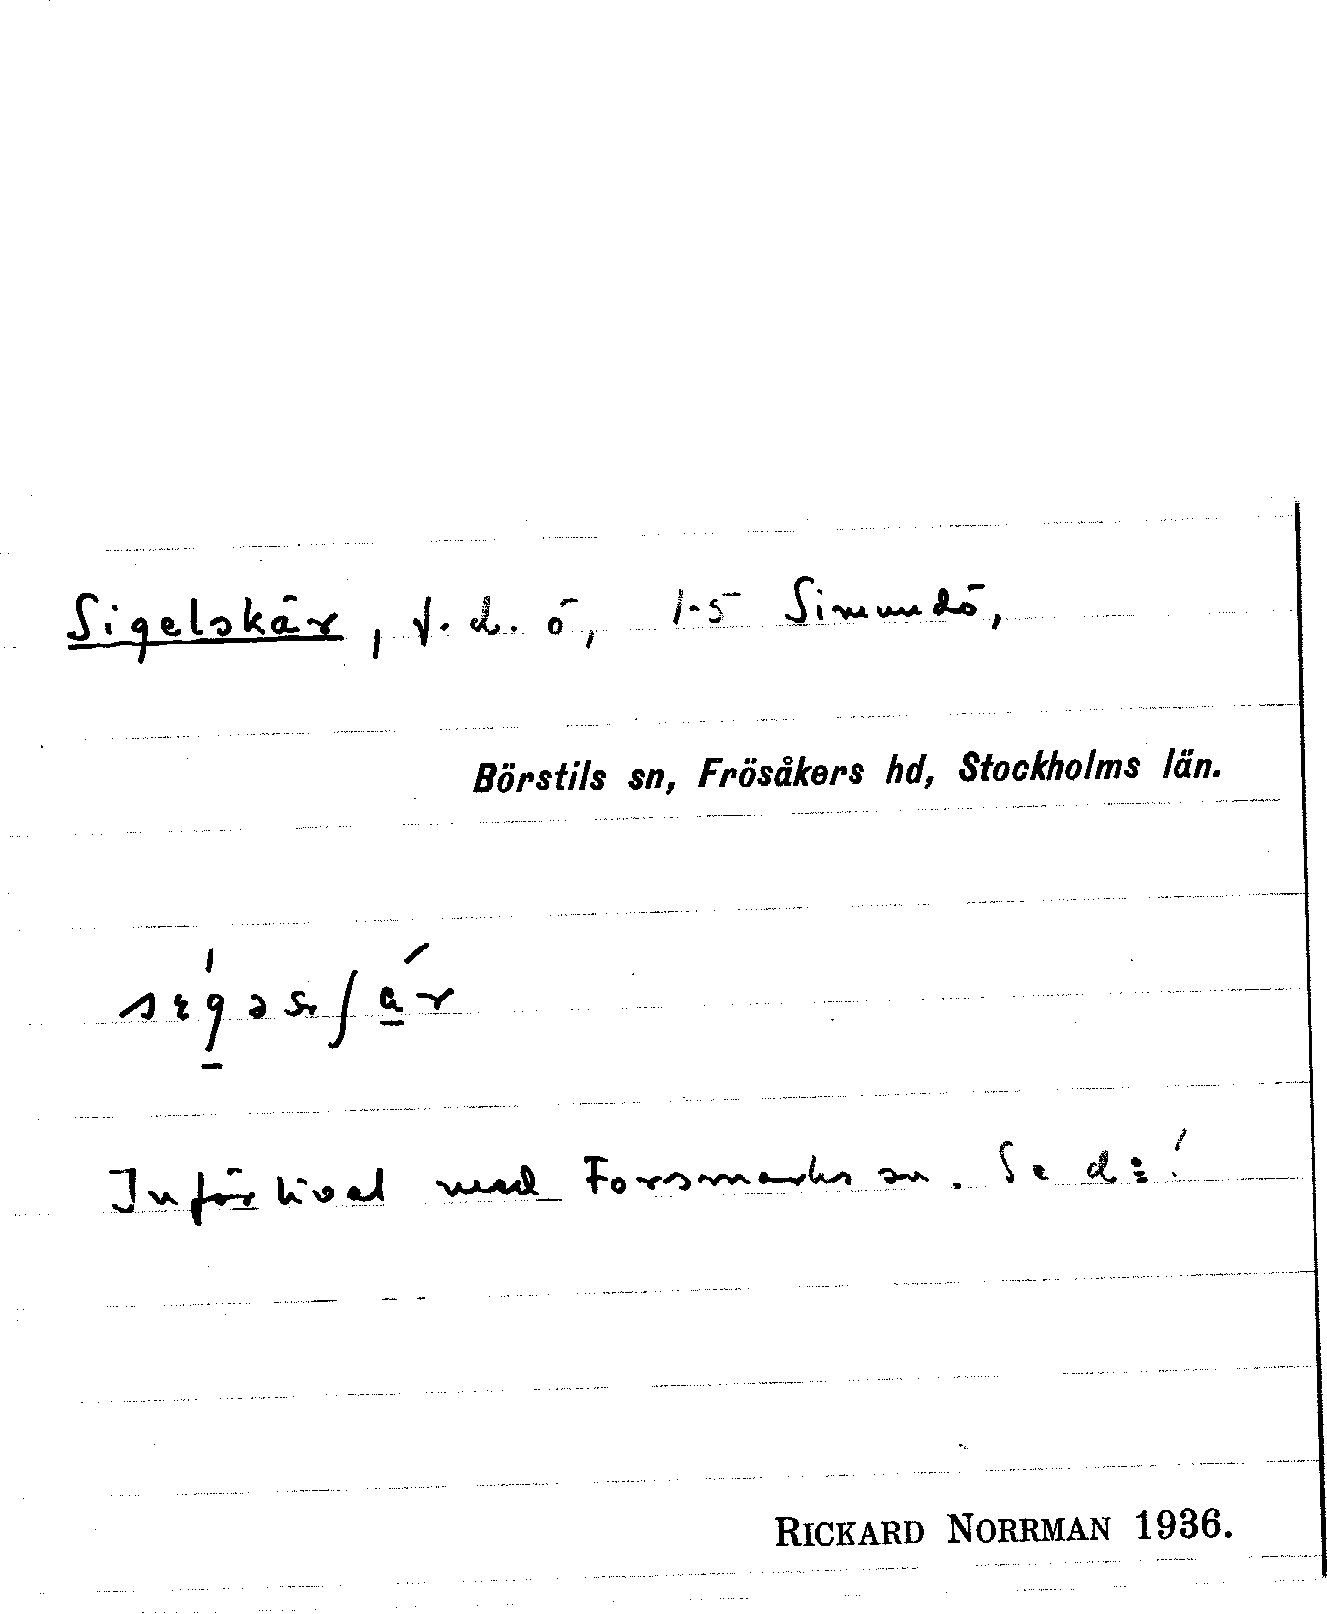 Sigelskär, f.d. ö, 1-5 Simundö,
Börstils sn, Frösåkers hd, Stockholms län.
Införlivat med Forsmarks sn. Se d:o!
RICKARD NORRMAN 1936.